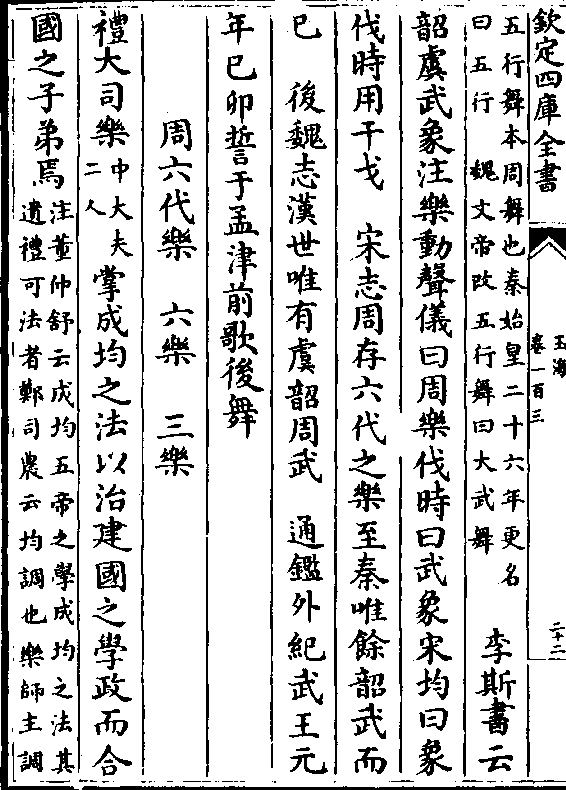 欽定四庫全書
玉海
卷一百三
二十二
五行舞本周舞也秦始皇二十六年更名
曰五行 魏文帝改五行舞曰大武舞
李斯書云
韶虞武象注樂動聲儀曰周樂伐時曰武象宋均曰象
伐時用干戈 宋志周存六代之樂至秦唯餘韶武而
已 後魏志漢世唯有虞韶周武 通鑑外紀武王元
年巳卯誓于孟津前歌後舞
周六代樂 六樂 三樂
禮大司樂
中大夫
二人
掌成均之法以治建國之學政而合
國之子弟焉
注董仲舒云成均五帝之學成均之法其
遺禮可法者鄭司農云均調也樂師主調